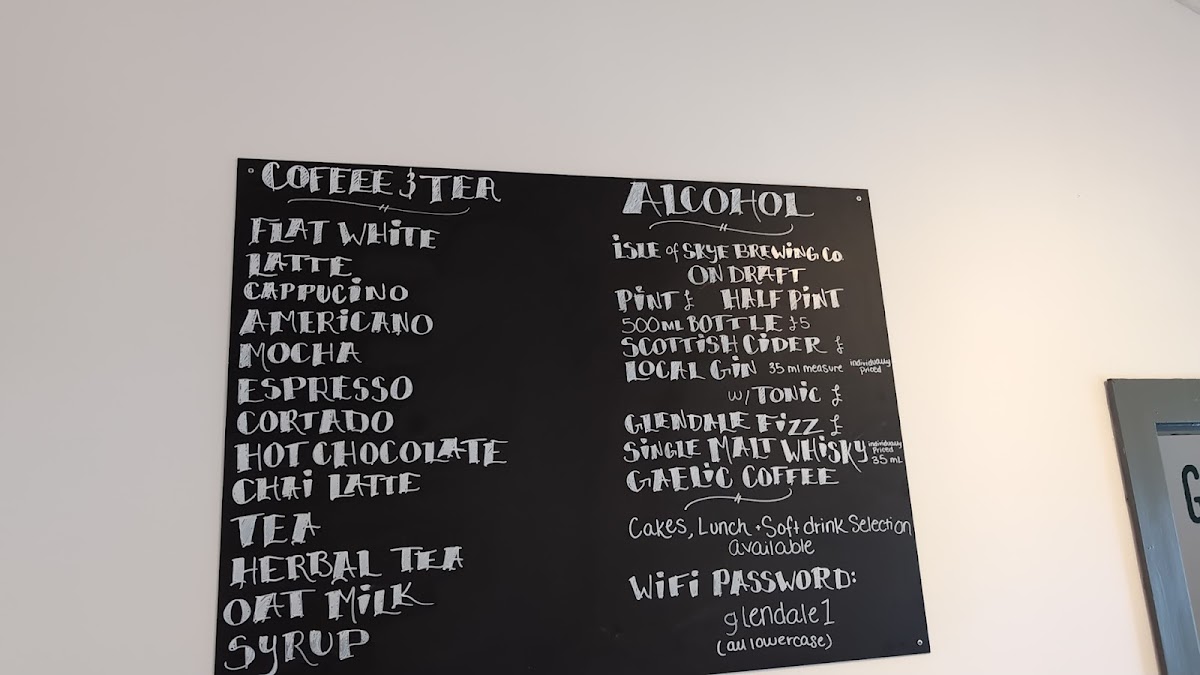 COFEEE & TEA
FLAT WHITE
LATTE
CAPPUCINO
AMERICANO
MOCHA
ESPRESSO
CORTADO
HOT CHOCOLATE
CHAI LATTE
TEA
HERBAL TEA
OAT MILK
SYRUP
ALCOHOL
ISLE of SKYE BREWING CO.
ON DRAFT
PINT £ HALF PINT
500ML BOTTLE £5
SCOTTISH CIDER £
LOCAL GIN 35 ml measure individually Priced
W/ TONIC £
GLENDALE FIZZ £
SINGLE MALT WHISKY individually Priced 35 mL
GAELIC COFFEE
Cakes, Lunch + Soft drink Selection
available
WIFI PASSWORD:
glendale1
(all lowercase)
G